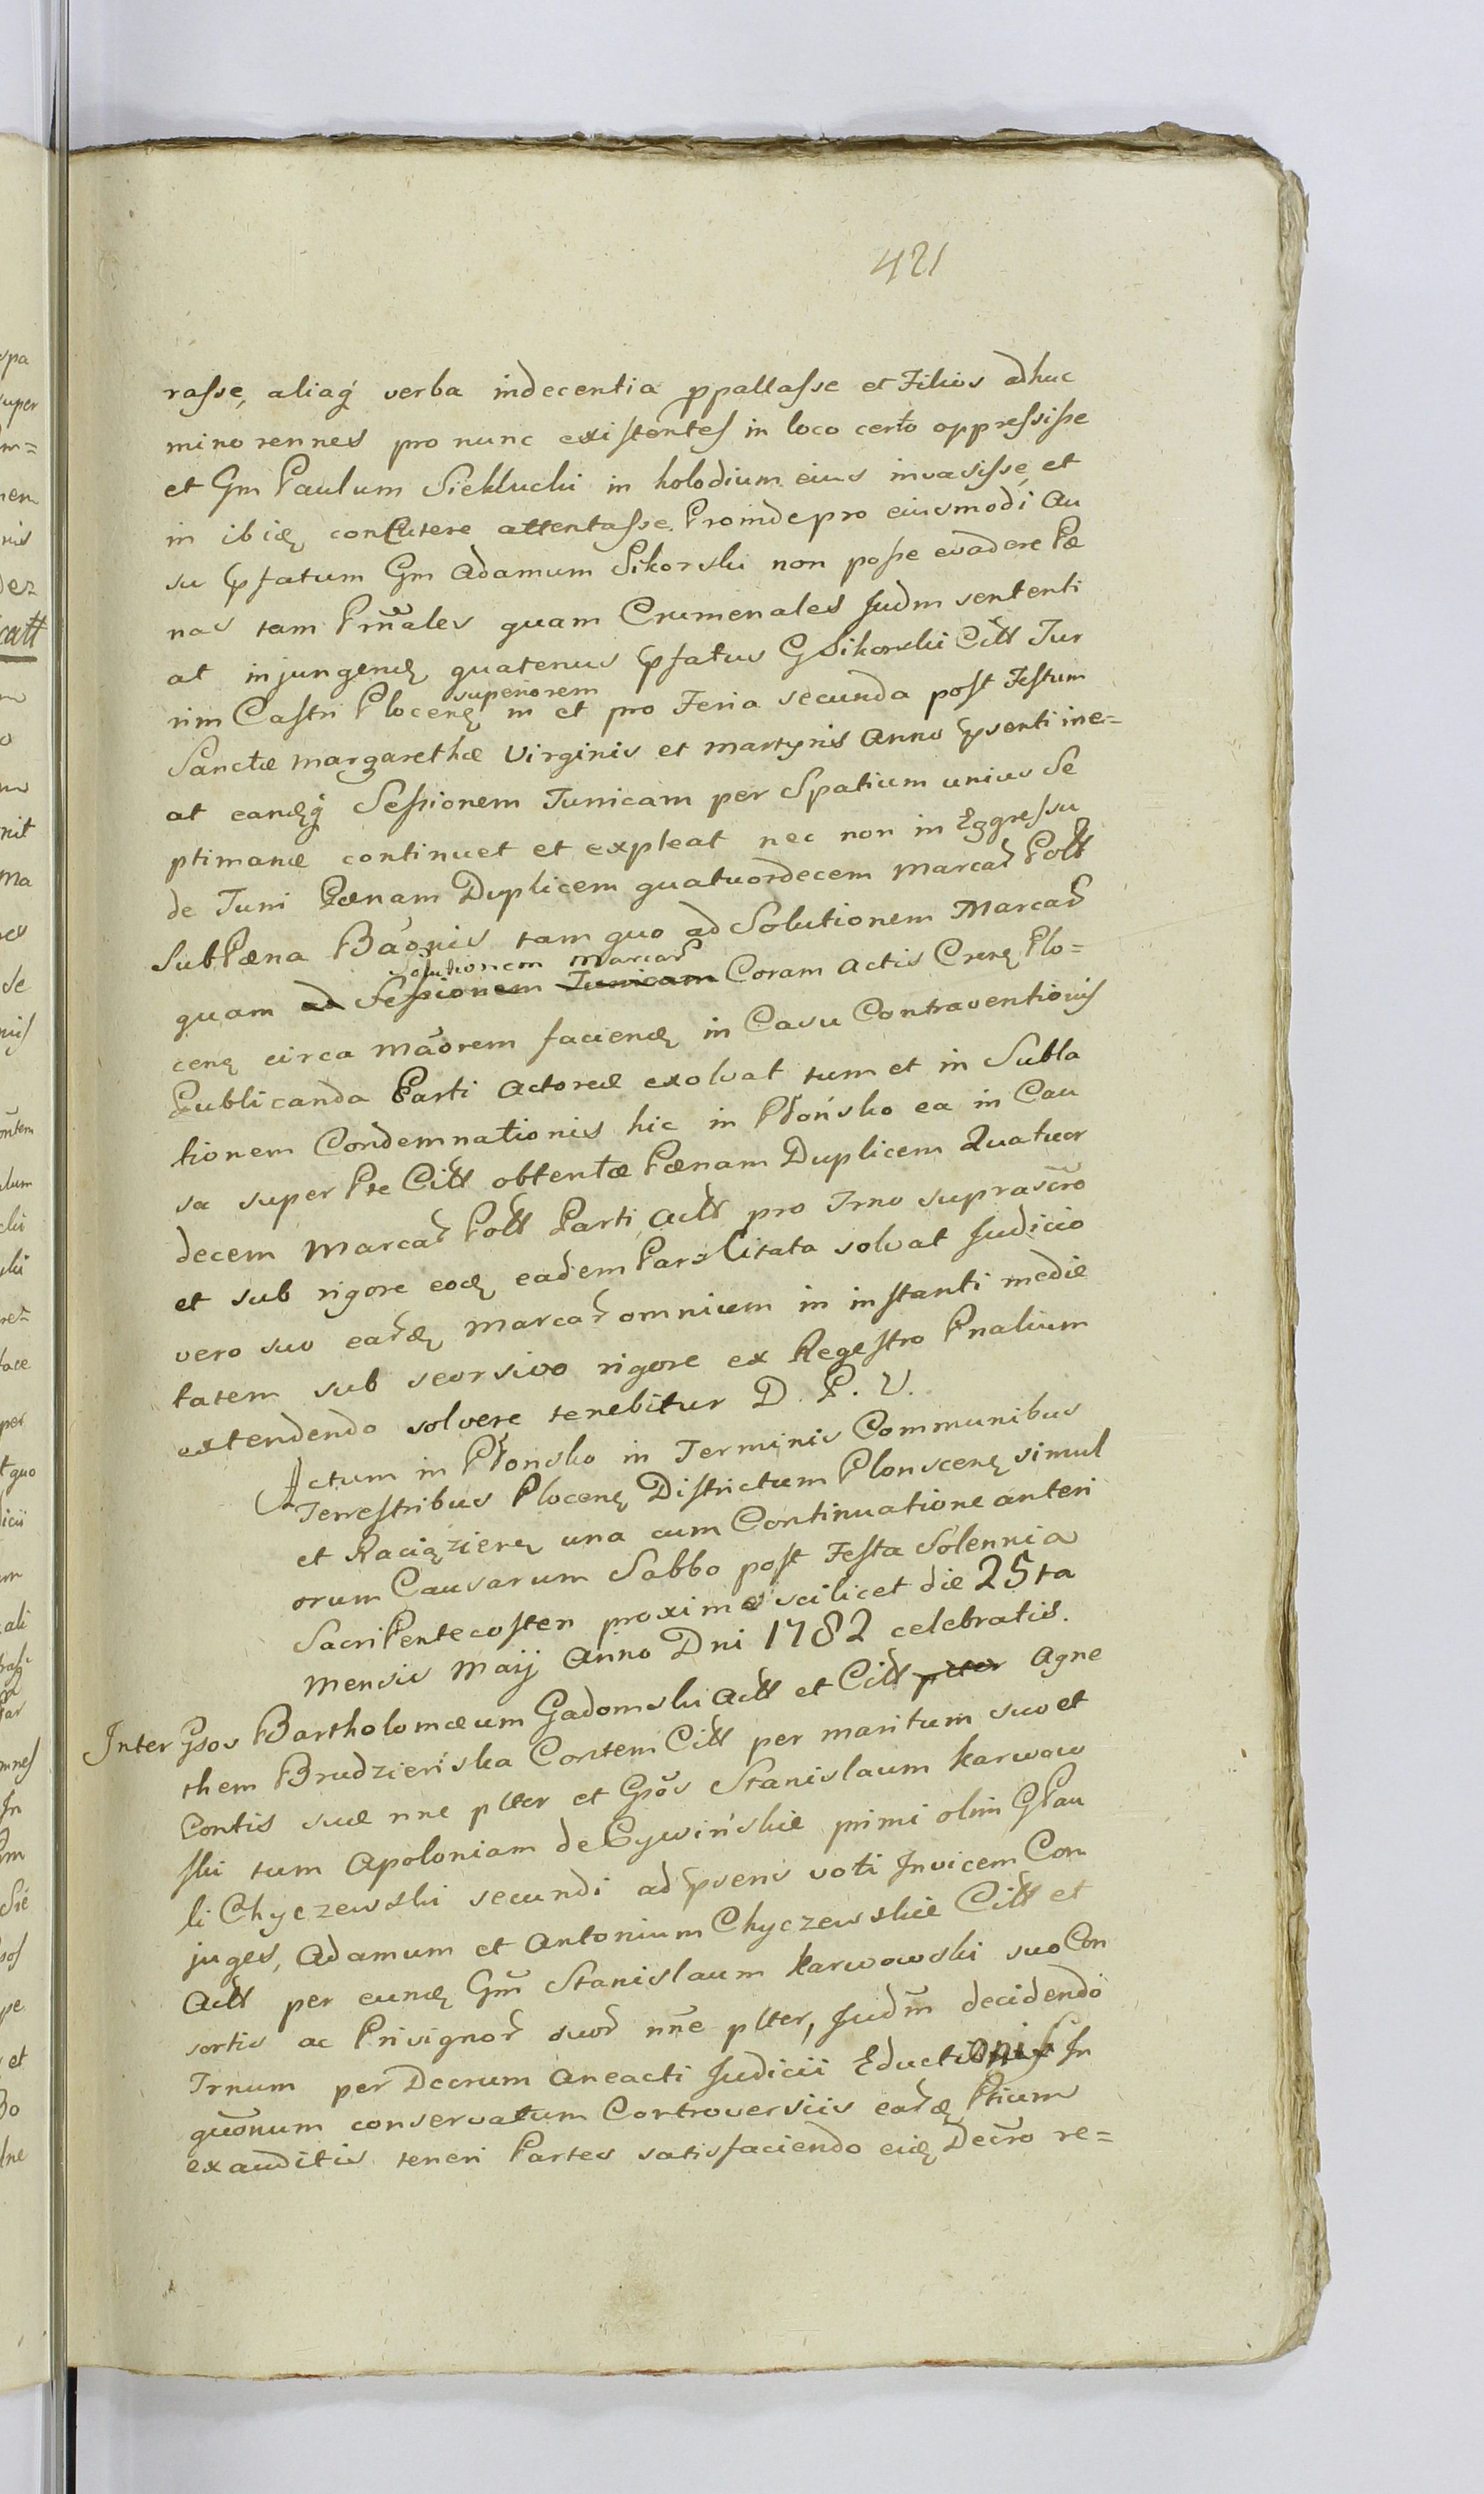 421
rasse, aliaq verba indecentia ppallasse et Filios adhuc
mino rennes pro nunc existentes in loco certo oppressisse
et Gm Paulum Siekłucki in holodium eius invasisse, et
in ibidę concutere attentasse. Proinde pro eiusmodi Au
su pfatum Gm Adamum Sikorski non posse evadere Pæ
nas tam Pnnales quam Crumenales Judm sententi
at injungendę quatenus pfatus G Sikorski Citt Tur
rim Castri Plocenę superiorem in et pro Feria secunda post Festum
Sanctæ Margarethæ Virginis et Martyris Anno psenti ine=
at eandęq Sessionem Turricam per Spatium unius Se
ptimanæ continuet et expleat nec non in Eggressu
de Turri Pænam Duplicem quatuordecem Marcar Poll
Sub Pæna Baonis tam quo ad Solutionem Marcar
quam ad Sessionem Turricam solutionem Marcar Coram Actis Crenę Plo=
cenę circa Maorem faciendę in Casu Contraventionis
Publicanda Parti Actoreæ exolvat tum et in Subla
tionem Condemnationis hic in Płońsko ea in Cau
sa super Pte Citt obtentæ Pænam Duplicem Quatuor
decem Marcar Poll Parti Actt pro Trno suprascro
et sub rigore eodę eadem Pars Citata solvat Judicio
vero suo eardę Marcar omnium in instanti medie
tatem sub seorsivo rigore ex Regestro Pnalium
extendendo solvere tenebitur D. P. V.
Actum in Płonsko in Terminis Communibus
Terrestribus Plocenę Districtum Plonscenę simul
et Raciązienę una cum Continuatione anteri
orum Causarum Sabbo post Festa Solennia
Sacri Pentecosten proxime scilicet die 25ta
Mensis Maij Anno Dni 1782 celebratis.
Inter Gsos Bartholomæum Gadomski Actt et Citt pcter Agne
them Brudzieńska Contem Citt per maritum suo et
Contis suæ nne plter et Gsos Stanislaum Karwow
ski tum Apoloniam de Cywińskie primi olim G Pau
li Chyczewski secundi ad psens voti Invicem Con
juges, Adamum et Antonium Chyczewskie Citt et
Actt per eundę Gm Stanislaum Karwowski suo Con
sortis ac Privignor suor nne plter, Judm decidendo
Trnum per Decrum Aneacti Judicii Eductionis In
quonum conservatum Controversiis eardę Ptium
exauditis teneri Partes satisfaciendo eidę Decro re=